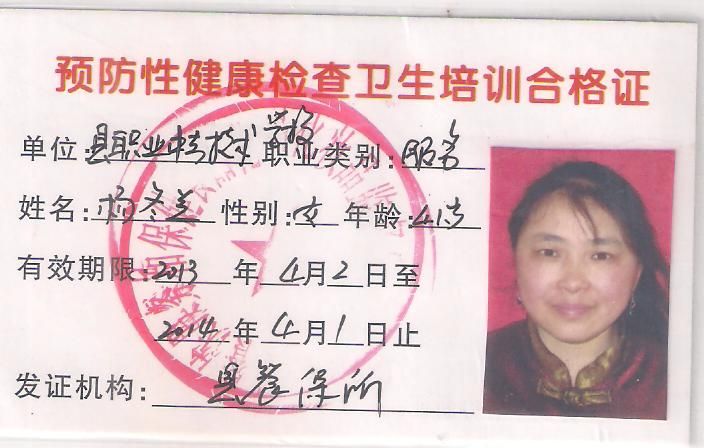 预防性健康检查卫生培训合格证
单位:县职业中专技术学校 职业类别:服务
姓名:杨冬兰 性别:女 年龄:41岁
有效期限:2013 年 4月2 日至
2014 年 4月1 日止
发证机构: 县餐保所